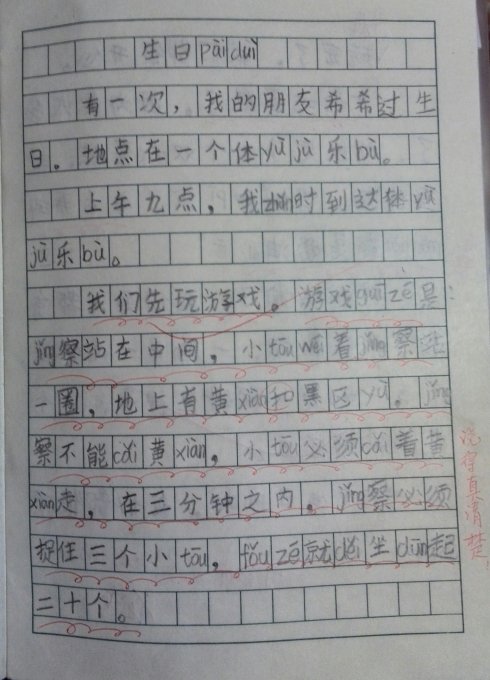 生日pāiduì
有一次，我的朋友希希过生
日。地点在一个体yù jù乐bù。
上午九点，我zhǔn时到达体yù
jù乐bù。
我们先玩游戏。游戏guī zé是：
jǐng察站在中间，小tōu wéi着jǐng察站
一圈，地上有黄xiàn和黑区yù。jǐng
察不能cǎi黄xiàn，小tōu必须cǎi着黄
xiàn走，在三分钟之内，jǐng察必须
捉住三个小tōu，fǒu zé就děi坐dūn起
二十个。
说得真清楚。